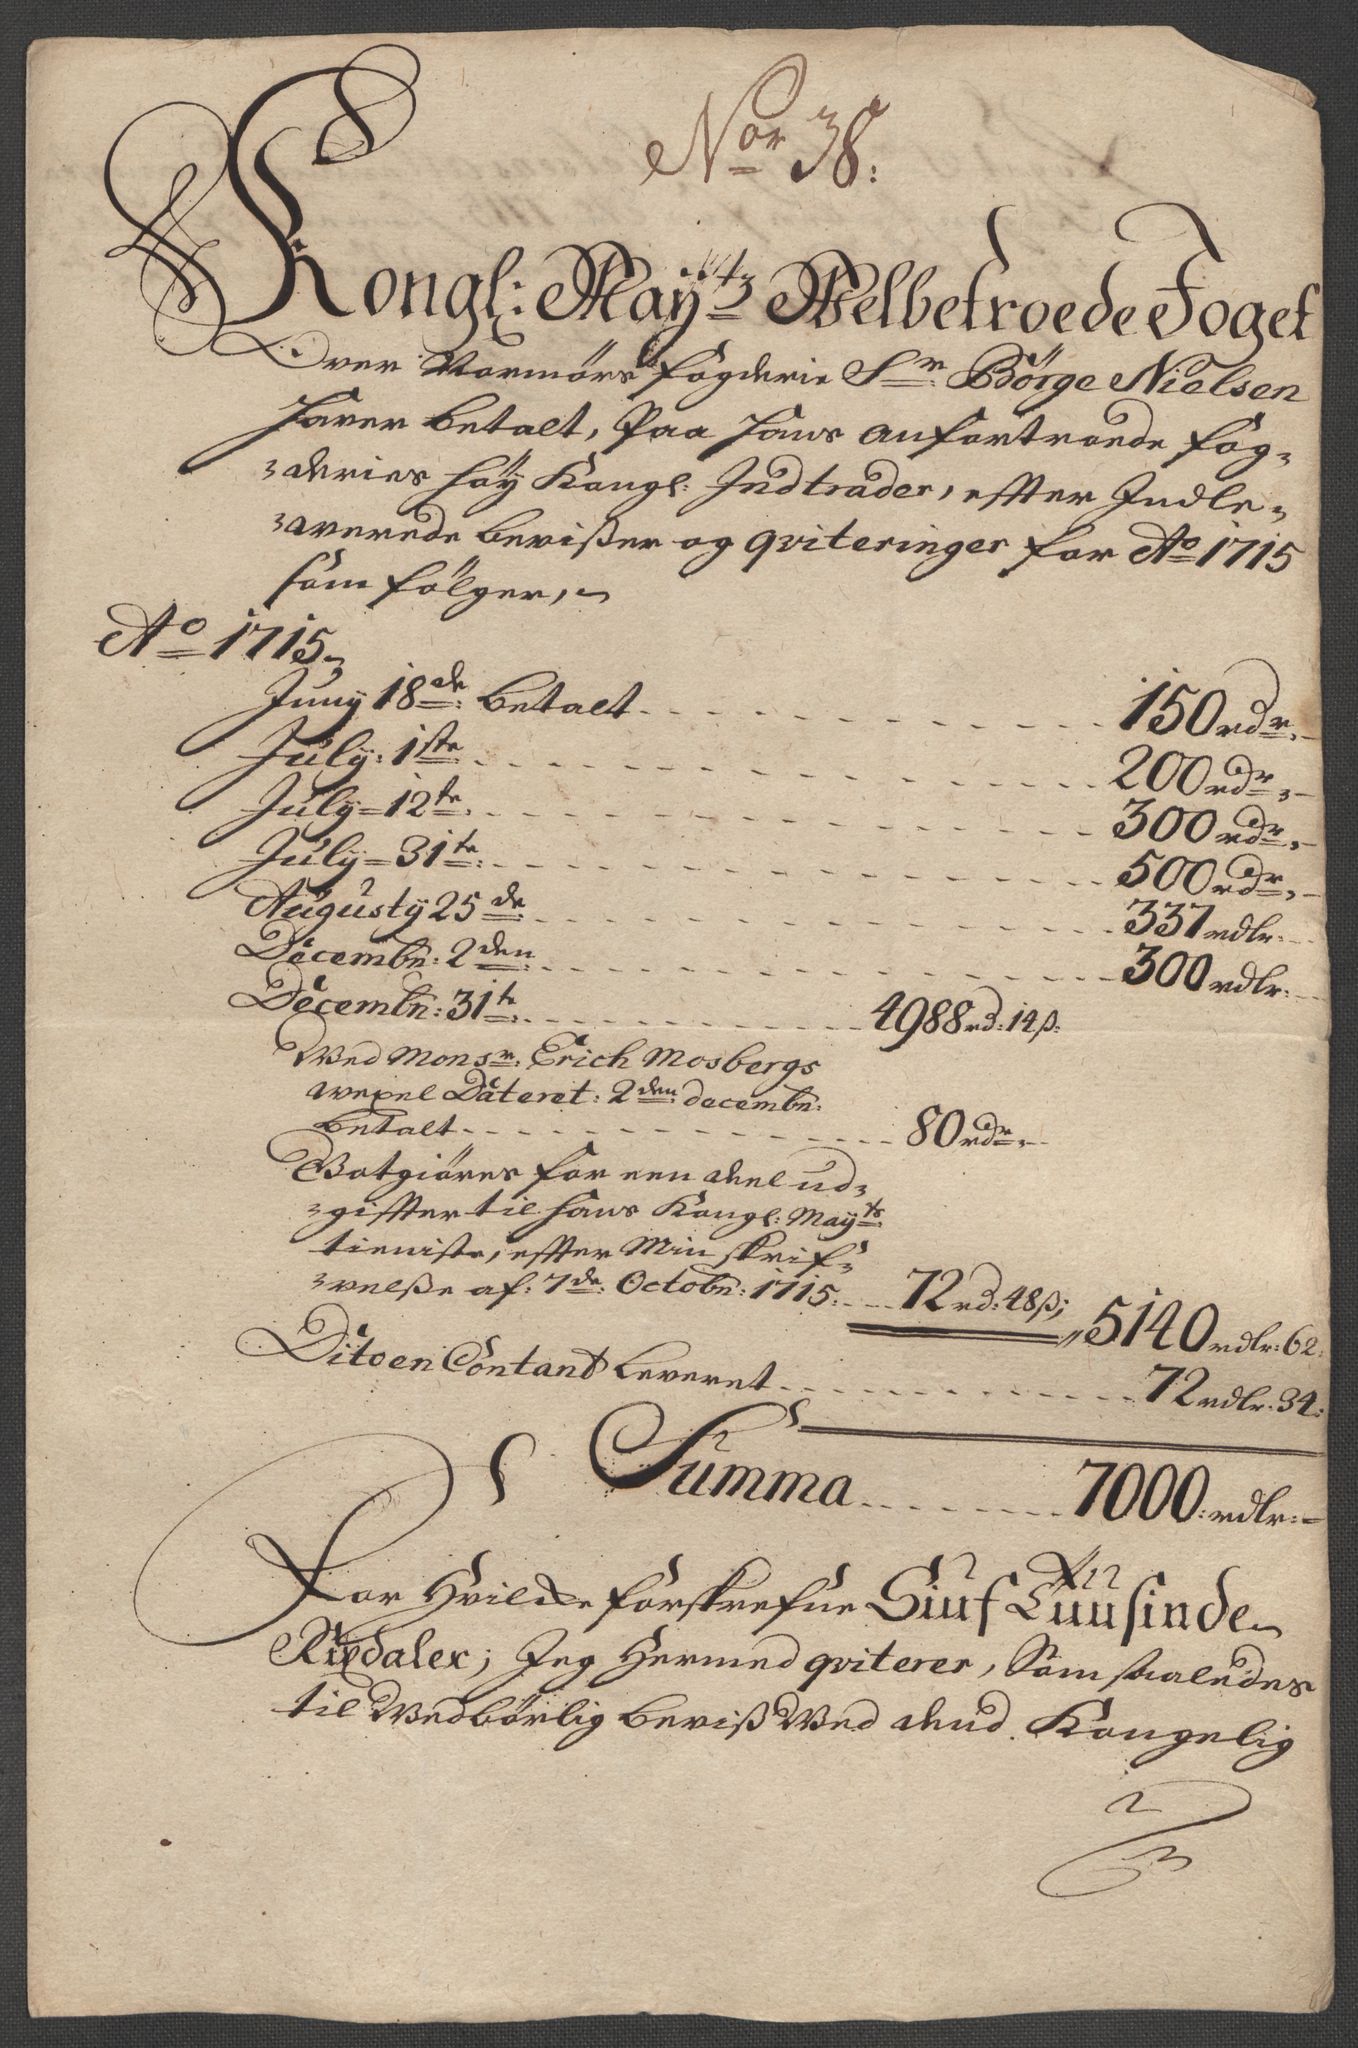 Nor 38:
Kongl: Mayts Welbetroede Foget
Over Normörs fögderie Sr: Börge Nielsen
Haver betalt, Paa Hans anfortroede fög-
-deries höy Kongl: Indtrader, effter Indle-
-werede bevißer og qviteringer for Ao 1715
som fölger,
Ao 1715
Juny 18de: betalt 150 rdr:
July: 1ste 200 rdr:
July 12te: 300 rdr:
July 31te: 500 rdr:
Augusty 25de 337 rdlr:
Decembr: 2den 300 rdlr:
Decembr: 31te 4988 rd: 14ß:
Wed Monsr: Erich Mosbergs
wexel Dateret: 2den decembr:
betalt 80 rdr:
Gotgiöres for een deel ud-
-giffter til Hans Kongl: Mayts
tieniste, effter Min skrif-
-velße af: 7de: Octobr: 1715: 72 rd: 48ß; 5140 rdlr: 62:
Ditoen Contant leveret 72 rdlr: 34:
Summa 7000: rdlr:
For Hvilcke forskrefne Siuf Tuusinde
Rixdaler; Jeg Hermed qviterer, Som saaledes
til Wedbörlig beviß Wed dend Kongelig